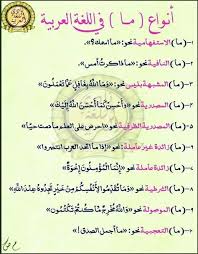 أنواع ( ما ) في اللغة العربية
١-(ما) الاستفهامية نحو: «ما اسمك؟».
٢-(ما) النافية نحو: «ما ذاكرتُ أمس».
٣-(ما) المشبهة بليس نحو: «وَمَا اللَّهُ بِغَافِلٍ عَمَّا تَعْمَلُونَ»
٤-(ما) المصدرية نحو: «وَأَحْسِنْ كَمَا أَحْسَنَ اللَّهُ إِلَيْكَ»
٥-(ما) المصدرية الظرفية نحو: «احرص على العلم ما دمت حيًّا»
٦-(ما) زائدة غير عاملة نحو: «إذا ما اتحد العرب انتصروا»
٧-(ما) زائدة عاملة نحو: «إِنَّمَا الْمُؤْمِنُونَ إِخْوَةٌ»
٨-(ما) الشرطية نحو: «وَمَا تُقَدِّمُوا لِأَنْفُسِكُمْ مِنْ خَيْرٍ تَجِدُوهُ عِنْدَ اللَّهِ»
٩-(ما) الموصولة نحو: «وَاللَّهُ مُخْرِجٌ مَا كُنْتُمْ تَكْتُمُونَ»
(ما) التعجبية نحو: «ما أجمل الصدق!»